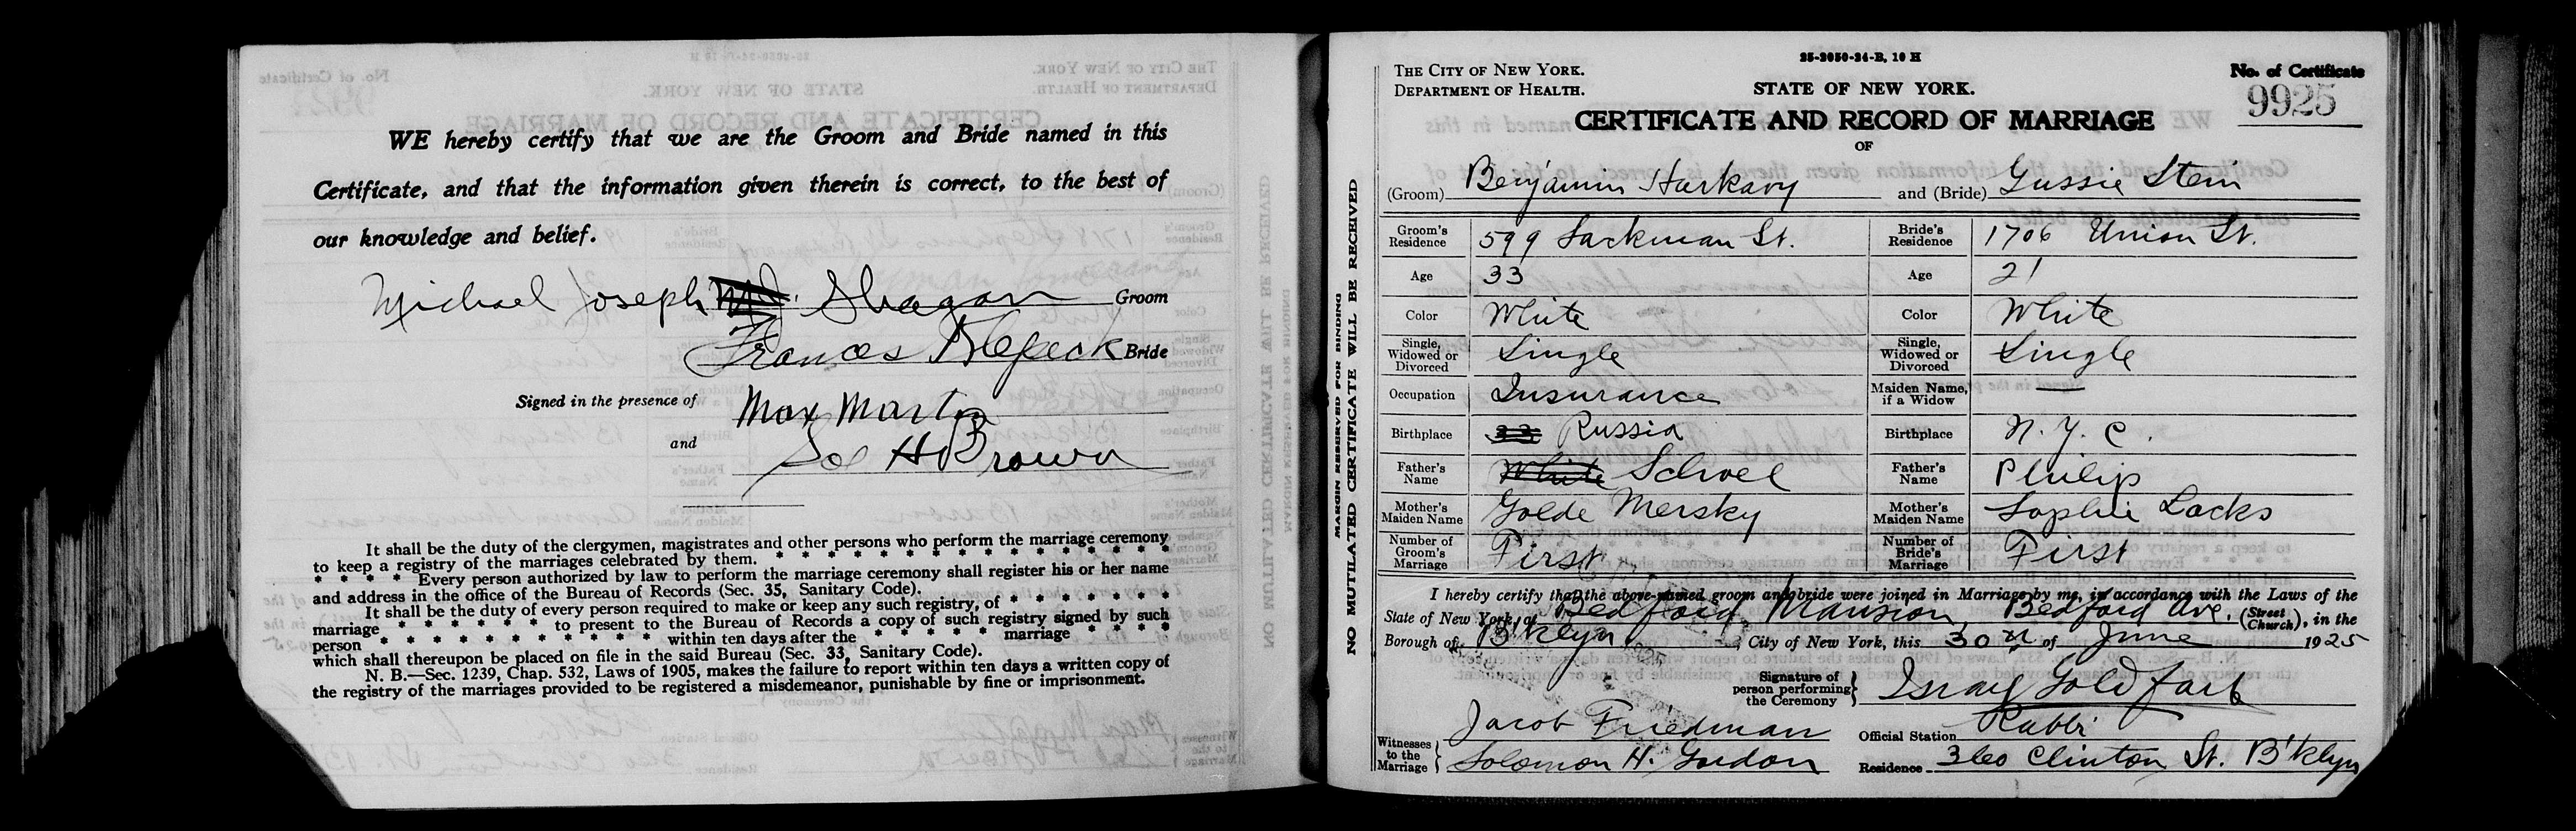 WE hereby certify that we are the Groom and Bride named in this
Certificate, and that the information given therein is correct, to the best of
our knowledge and belief.
Michael Joseph Shagan Groom
Frances Bride
Signed in the presence of Max Martin
and Sol H Brown
It shall be the duty of the clergymen, magistrates and other persons who perform the marriage ceremony
to keep a registry of the marriages celebrated by them. * * * * * * * * * * * * * *
* * * * Every person authorized by law to perform the marriage ceremony shall register his or her name
and address in the office of the Bureau of Records (Sec. 35, Sanitary Code).
It shall be the duty of every person required to make or keep any such registry, of * * * * * * *
marriage * * * * * * to present to the Bureau of Records a copy of such registry signed by such
person * * * * * * * * * * * within ten days after the * * * * * marriage * * * *
which shall thereupon be placed on file in the said Bureau (Sec. 33, Sanitary Code).
N. B.—Sec. 1239, Chap. 532, Laws of 1905, makes the failure to report within ten days a written copy of
the registry of the marriages provided to be registered a misdemeanor, punishable by fine or imprisonment.
MARGIN RESERVED FOR BINDING
NO MUTILATED CERTIFICATE WILL BE RECEIVED
25-2050-24-B, 10 H
THE CITY OF NEW YORK.
DEPARTMENT OF HEALTH.
STATE OF NEW YORK.
No. of Certificate
9925
CERTIFICATE AND RECORD OF MARRIAGE
OF
(Groom) Benjamin Harkavy and (Bride) Gussie Stein
Groom's Residence 599 Sackman St. Bride's Residence 1706 Union St.
Age 33 Age 21
Color White Color White
Single, Widowed or Divorced Single Single, Widowed or Divorced Single
Occupation Insurance Maiden Name, if a Widow —
Birthplace 33 Russia Birthplace N. Y. C.
Father's Name White Schoel Father's Name Philip
Mother's Maiden Name Golde Mersky Mother's Maiden Name Sophie Lacks
Number of Groom's Marriage First Number of Bride's Marriage First
I hereby certify that the above-named groom and bride were joined in Marriage by me, in accordance with the Laws of the
State of New York, at Bedford Mansion, Bedford Ave. (Street Church), in the
Borough of B'klyn, City of New York, this 30 of June 1925
Signature of person performing the Ceremony Israel Goldfarb
Witnesses to the Marriage Jacob Friedman Official Station Rabbi
Solomon H. Gordon Residence 360 Clinton St. B'klyn